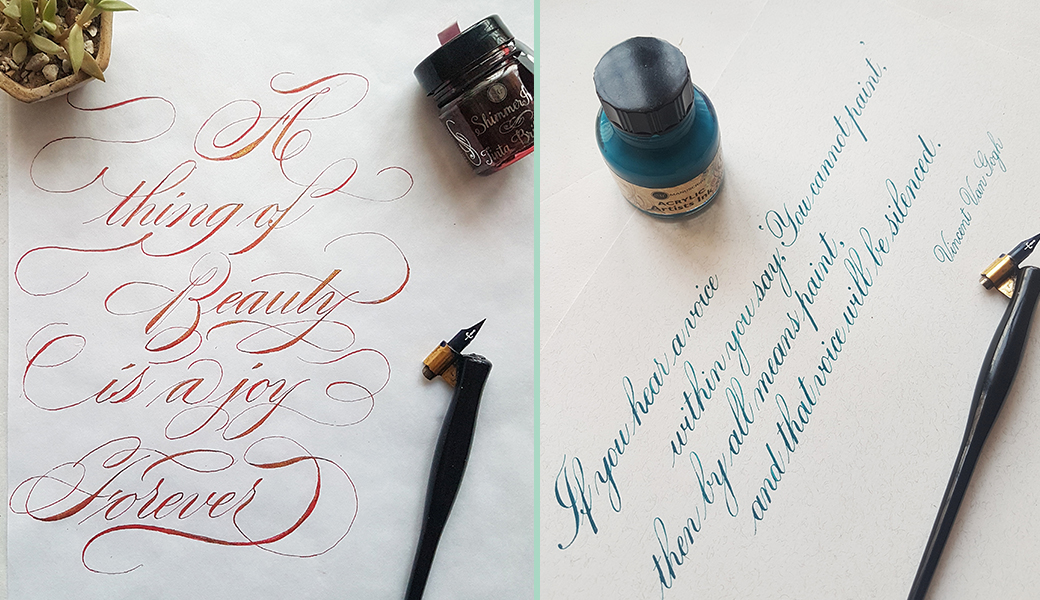 A
thing of
Beauty
is a joy
Forever
Shimmer
Tinta
If you hear a voice
within you say, "You cannot paint,
then by all means paint,
and that voice will be silenced.
Vincent Van Gogh
ACRYLIC
Artists Ink